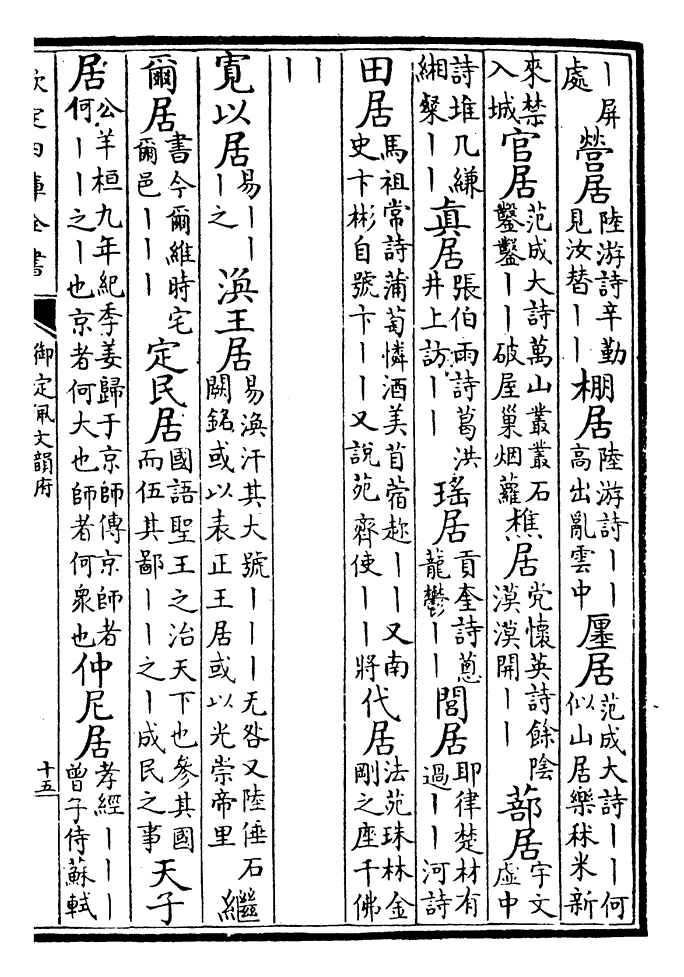 丨屏處 營居 陸游詩辛勤見汝替丨丨 棚居 陸游詩丨丨高出亂雲中 廛居 范成大詩丨丨何似山居樂秫米新
來禁入城 官居 范成大詩萬山叢叢石鑿鑿丨丨破屋巢烟蘿 樵居 党懷英詩餘陰漠漠開丨丨 蔀居 宇文虛中
詩堆几縑緗粲丨丨 真居 張伯雨詩葛洪井上訪丨丨 瑤居 貢奎詩蔥蘢鬱丨丨 閭居 耶律楚材有過丨丨河詩
田居 馬祖常詩蒲萄憐酒美苜蓿趂丨丨又南史卞彬自號卞丨丨又說苑齊使丨丨將 代居 法苑珠林金剛之座千佛
丨丨
寛以居 易丨丨丨之 渙王居 易渙汗其大號丨丨丨无咎又陸倕石闕銘或以表正王居或以光崇帝里 繼
爾居 書今爾維時宅爾邑丨丨丨 定民居 國語聖王之治天下也參其國而伍其鄙丨丨之丨成民之事 天子
居 公羊桓九年紀季姜歸于京師傳京師者何丨丨之丨也京者何大也師者何衆也 仲尼居 孝經丨丨丨曾子侍蘇軾
欽定四庫全書 御定佩文韻府 十五